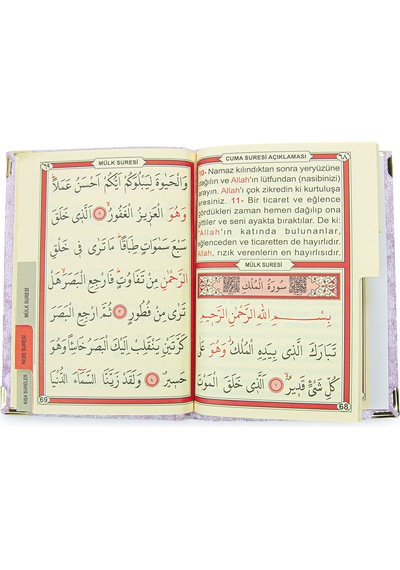 CUMA SURESİ AÇIKLAMASI ٦٨
10- Namaz kılındıktan sonra yeryüzüne
dağılın ve Allah'ın lütfundan (nasibinizi)
arayın. Allah'ı çok zikredin ki kurtuluşa
eresiniz. 11- Bir ticaret ve eğlence
gördükleri zaman hemen dağılıp ona
gittiler ve seni ayakta bıraktılar. De ki:
"Allah'ın katında bulunanlar,
eğlenceden ve ticaretten de hayırlıdır.
Allah, rızık verenlerin en hayırlısıdır.
MÜLK SURESİ
سُورَةُ الْمُلْكِ
بِسْمِ اللهِ الرَّحْمٰنِ الرَّحِيمِ
تَبَارَكَ الَّذِي بِيَدِهِ الْمُلْكُ وَهُوَ عَلٰى
كُلِّ شَيْءٍ قَدِيرٌ ١ الَّذِي خَلَقَ الْمَوْتَ
68
٦٩ MÜLK SURESİ
وَالْحَيٰوةَ لِيَبْلُوَكُمْ اَيُّكُمْ اَحْسَنُ عَمَلًا
وَهُوَ الْعَزِيزُ الْغَفُورُ ٢ الَّذِي خَلَقَ
سَبْعَ سَمٰوَاتٍ طِبَاقًا مَا تَرٰى فِي خَلْقِ
الرَّحْمٰنِ مِنْ تَفَاوُتٍ فَارْجِعِ الْبَصَرَ هَلْ
تَرٰى مِنْ فُطُورٍ ٣ ثُمَّ ارْجِعِ الْبَصَرَ
كَرَّتَيْنِ يَنْقَلِبْ اِلَيْكَ الْبَصَرُ خَاسِئًا وَهُوَ
حَسِيرٌ ٤ وَلَقَدْ زَيَّنَّا السَّمَاءَ الدُّنْيَا
69
MÜLK SURESİ
NEBE SURESİ
KISA SURELER